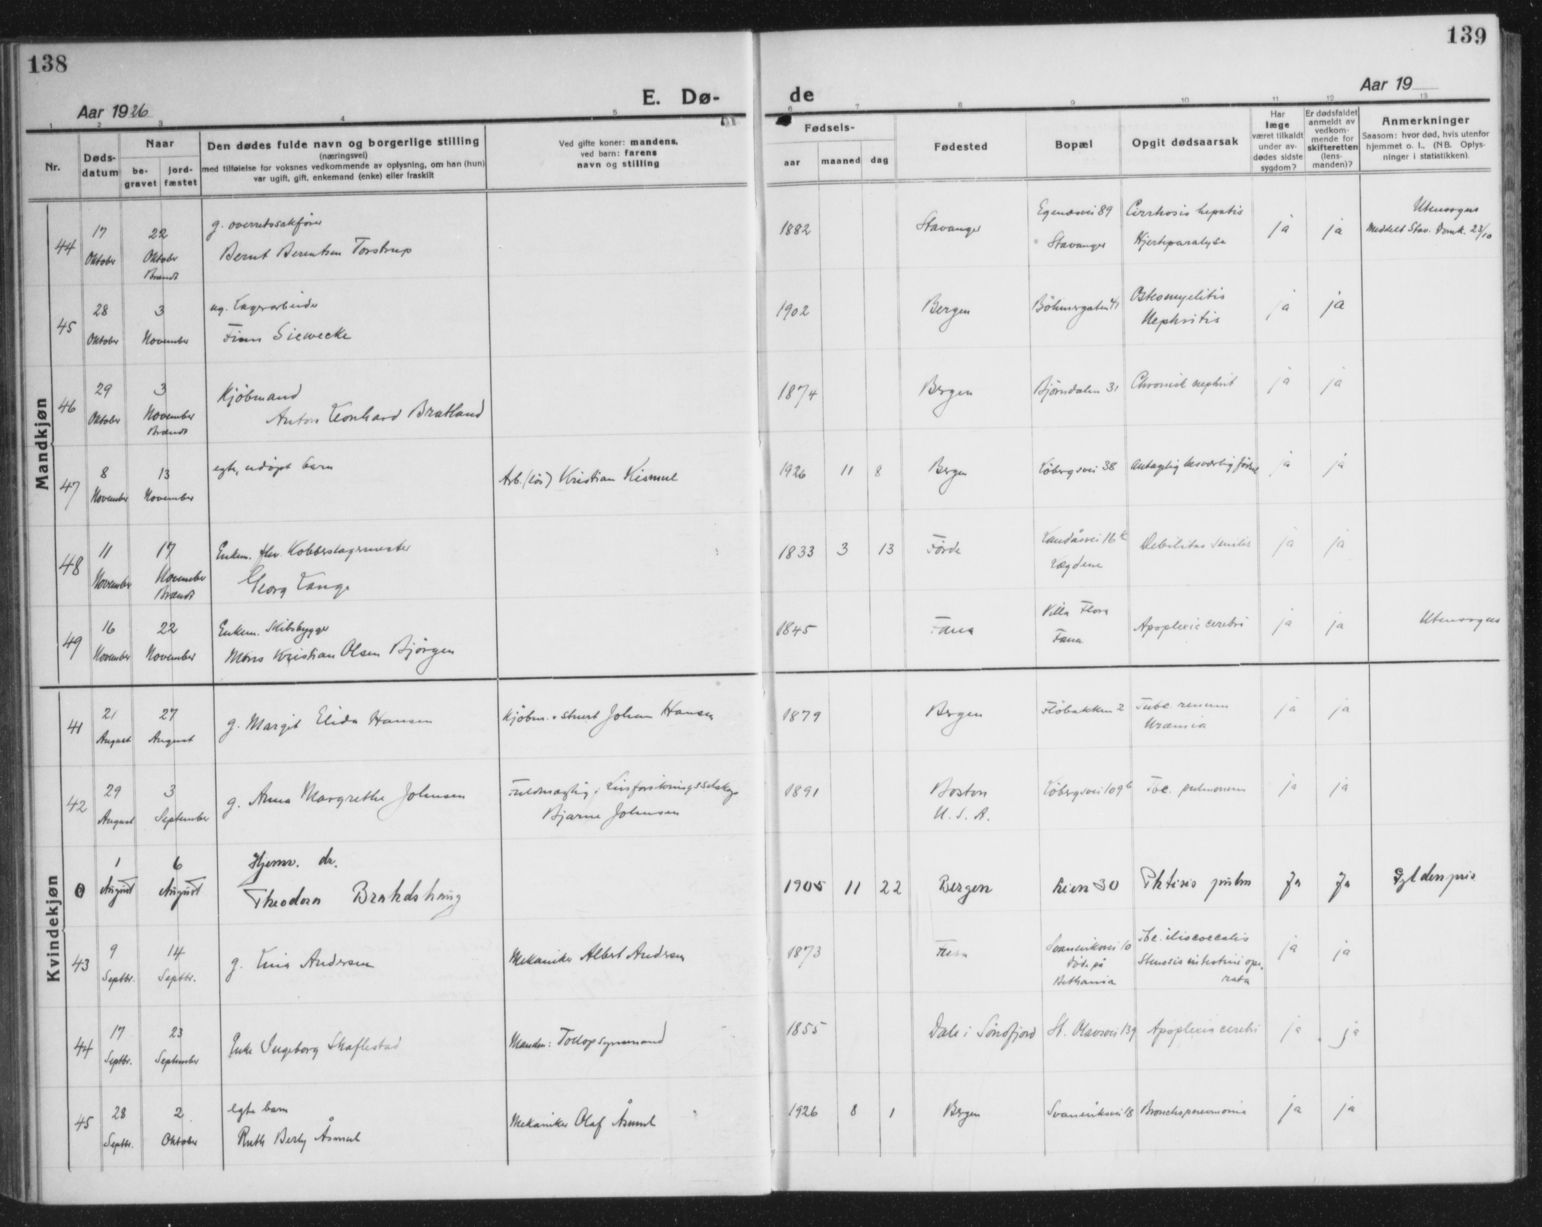 138
Aar 1926
E. Dø-
1 2 3 4 5
Nr.
Døds-
datum
Naar
be-
gravet
jord-
fæstet
Den dødes fulde navn og borgerlige stilling
(næringsvei)
med tilføielse for voksnes vedkommende av oplysning, om han (hun)
var ugift, gift, enkemand (enke) eller fraskilt
Ved gifte koner: mandens,
ved barn: farens
navn og stilling
139
Aar 19
de
6 7 8 9 10 11 12 13
Fødsels-
aar maaned dag
Fødested
Bopæl
Opgit dødsaarsak
Har
læge
været tilkaldt
under av-
dødes sidste
sygdom?
Er dødsfaldet
anmeldt av
vedkom-
mende for
skifteretten
(lens-
manden)?
Anmerkninger
Saasom: hvor død, hvis utenfor
hjemmet o. l., (NB. Oplys-
ninger i statistikken).
Mandkjøn
44 17 Oktober 22 Oktober Brændt
g. overretssakfører
Bernt Berentsen Torstrup
1882 Stavanger
Egenæsvei 89
Stavanger
Cirrhosis hepatis
Hjerteparalyse
ja ja
Utensogns
Meddelt Stav. Domk. 23/10
45 28 Oktober 3 November
ug. Lagerarbeider
Finn Siewecke
1902 Bergen Böhmergaten 41
Osteomyelitis
Nephritis
ja ja
46 29 Oktober 3 November Brændt
Kjøbmand
Anton Leonhard Bratland
1874 Bergen Bjørndalen 31 Chronisk nephrit ja ja
47 8 November 13 November
egte, udøpt barn
Arb. (løs) Kristian Kismul
1926 11 8 Bergen Løbergsvei 38 antagelig besværlig fødsel ja ja
48 11 November 17 November Brændt
Enkem. fhv. Kobberslagermester
Georg Lange
1833 3 13 Førde
Landåsvei 16
Lægdene
Debilitas senilis ja ja
49 16 November 22 November
Enkem. Skibsbygger
Mons Kristian Olsen Bjørgen
1845 Fana
Villa Flora
Fana
Apoplexie cerebri ja ja
Utensogns
Kvindekjøn
41 21 August 27 August
g. Margit Elida Hansen
Kjøbm. Johan Hansen
1879 Bergen Fløbakken 2
Tubc. renum
Uræmia
ja ja
42 29 August 3 September
g. Anna Margrethe Johnsen
Fuldmægtig i Livsforsikringsselskap
Bjarne Johnsen
1891
Boston
U.S.A.
Løbergsvei 109b Tbc. pulmonum ja ja
0 1 August 6 August
Hjemv. dr.
Theodora Brakdshaug
1905 11 22 Bergen Lien 30 Phtisis pulm Ja Ja Gyldenpris
43 9 Septbr. 14 Septbr.
g. Lina Andersen
Mekaniker Albert Andersen
1873 Fana
Svaneviksvei 10
Død på
Bethania
Tbc. iliocoecalis
Stenosis intestini ope-
rata
ja ja
44 17 Septbr. 23 September
Enke Ingeborg Skaflestad
Manden: Toldopsynsmand
1855 Dale i Søndfjord St. Olavsvei 139 Apoplexia cerebri ja ja
45 28 Septbr. 2 Oktober
egte barn
Ruth Berly Åsmul
Mekaniker Olaf Åsmul
1926 8 1 Bergen Svaneviksvei 18 Bronchopneumonia ja ja